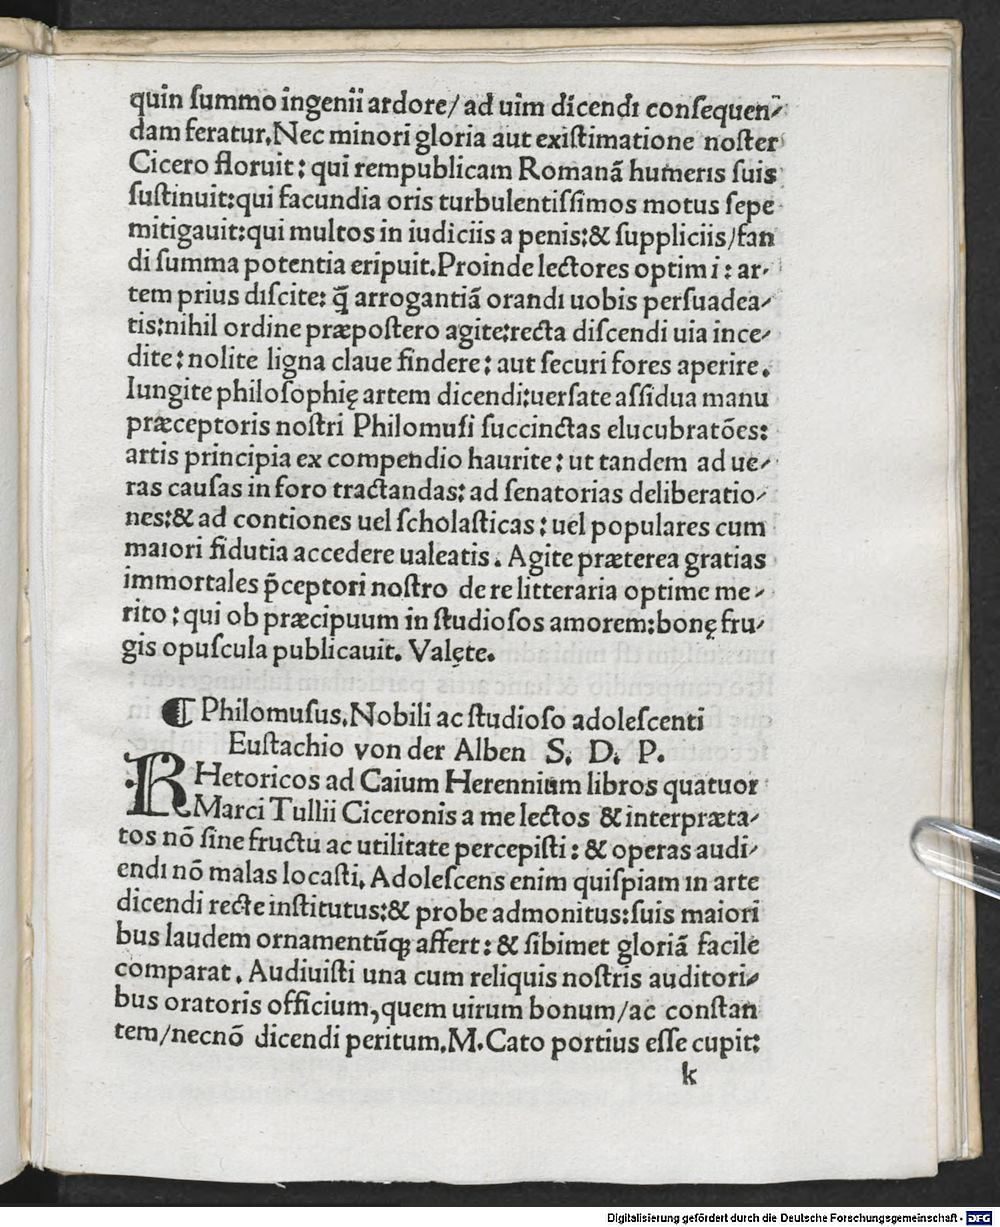 quin ſummo ingenii ardore/ ad uim dicendi conſequen⸗
dam feratur. Nec minori gloria aut exiſtimatione noſter
Cicero floruit: qui rempublicam Romanã humeris ſuis
ſuſtinuit: qui facundia oris turbulentiſſimos motus ſepe
mitigauit: qui multos in iudiciis a penis: & ſuppliciis/ fan
di ſumma potentia eripuit. Proinde lectores optimi: ar⸗
tem prius diſcite: q̃ arrogantiã orandi uobis perſuadea⸗
tis: nihil ordine præpoſtero agite: recta diſcendi uia ince⸗
dite: nolite ligna claue findere: aut ſecuri fores aperire.
Iungite philoſophię artem dicendi: uerſate aſſidua manu
præceptoris noſtri Philomuſi ſuccinctas elucubratões:
artis principia ex compendio haurite: ut tandem ad ue⸗
ras cauſas in foro tractandas: ad ſenatorias deliberatio⸗
nes: & ad contiones uel ſcholaſticas: uel populares cum
maiori fidutia accedere ualeatis. Agite præterea gratias
immortales p̃ceptori noſtro de re litteraria optime me⸗
rito: qui ob præcipuum in ſtudioſos amorem: bonę fru⸗
gis opuſcula publicauit. Valęte.
¶ Philomuſus. Nobili ac ſtudioſo adoleſcenti
Euſtachio von der Alben S. D. P.
RHetoricos ad Caium Herennium libros quatuor
Marci Tullii Ciceronis a me lectos & interpræta⸗
tos nõ ſine fructu ac utilitate percepiſti: & operas audi⸗
endi nõ malas locaſti. Adoleſcens enim quiſpiam in arte
dicendi recte inſtitutus: & probe admonitus: ſuis maiori
bus laudem ornamentũqꝫ affert: & ſibimet gloriã facile
comparat. Audiuiſti una cum reliquis noſtris auditori⸗
bus oratoris officium, quem uirum bonum/ ac conſtan
tem/ necnõ dicendi peritum. M. Cato portius eſſe cupit:
k
Digitalisierung gefördert durch die Deutsche Forschungsgemeinschaft - DFG